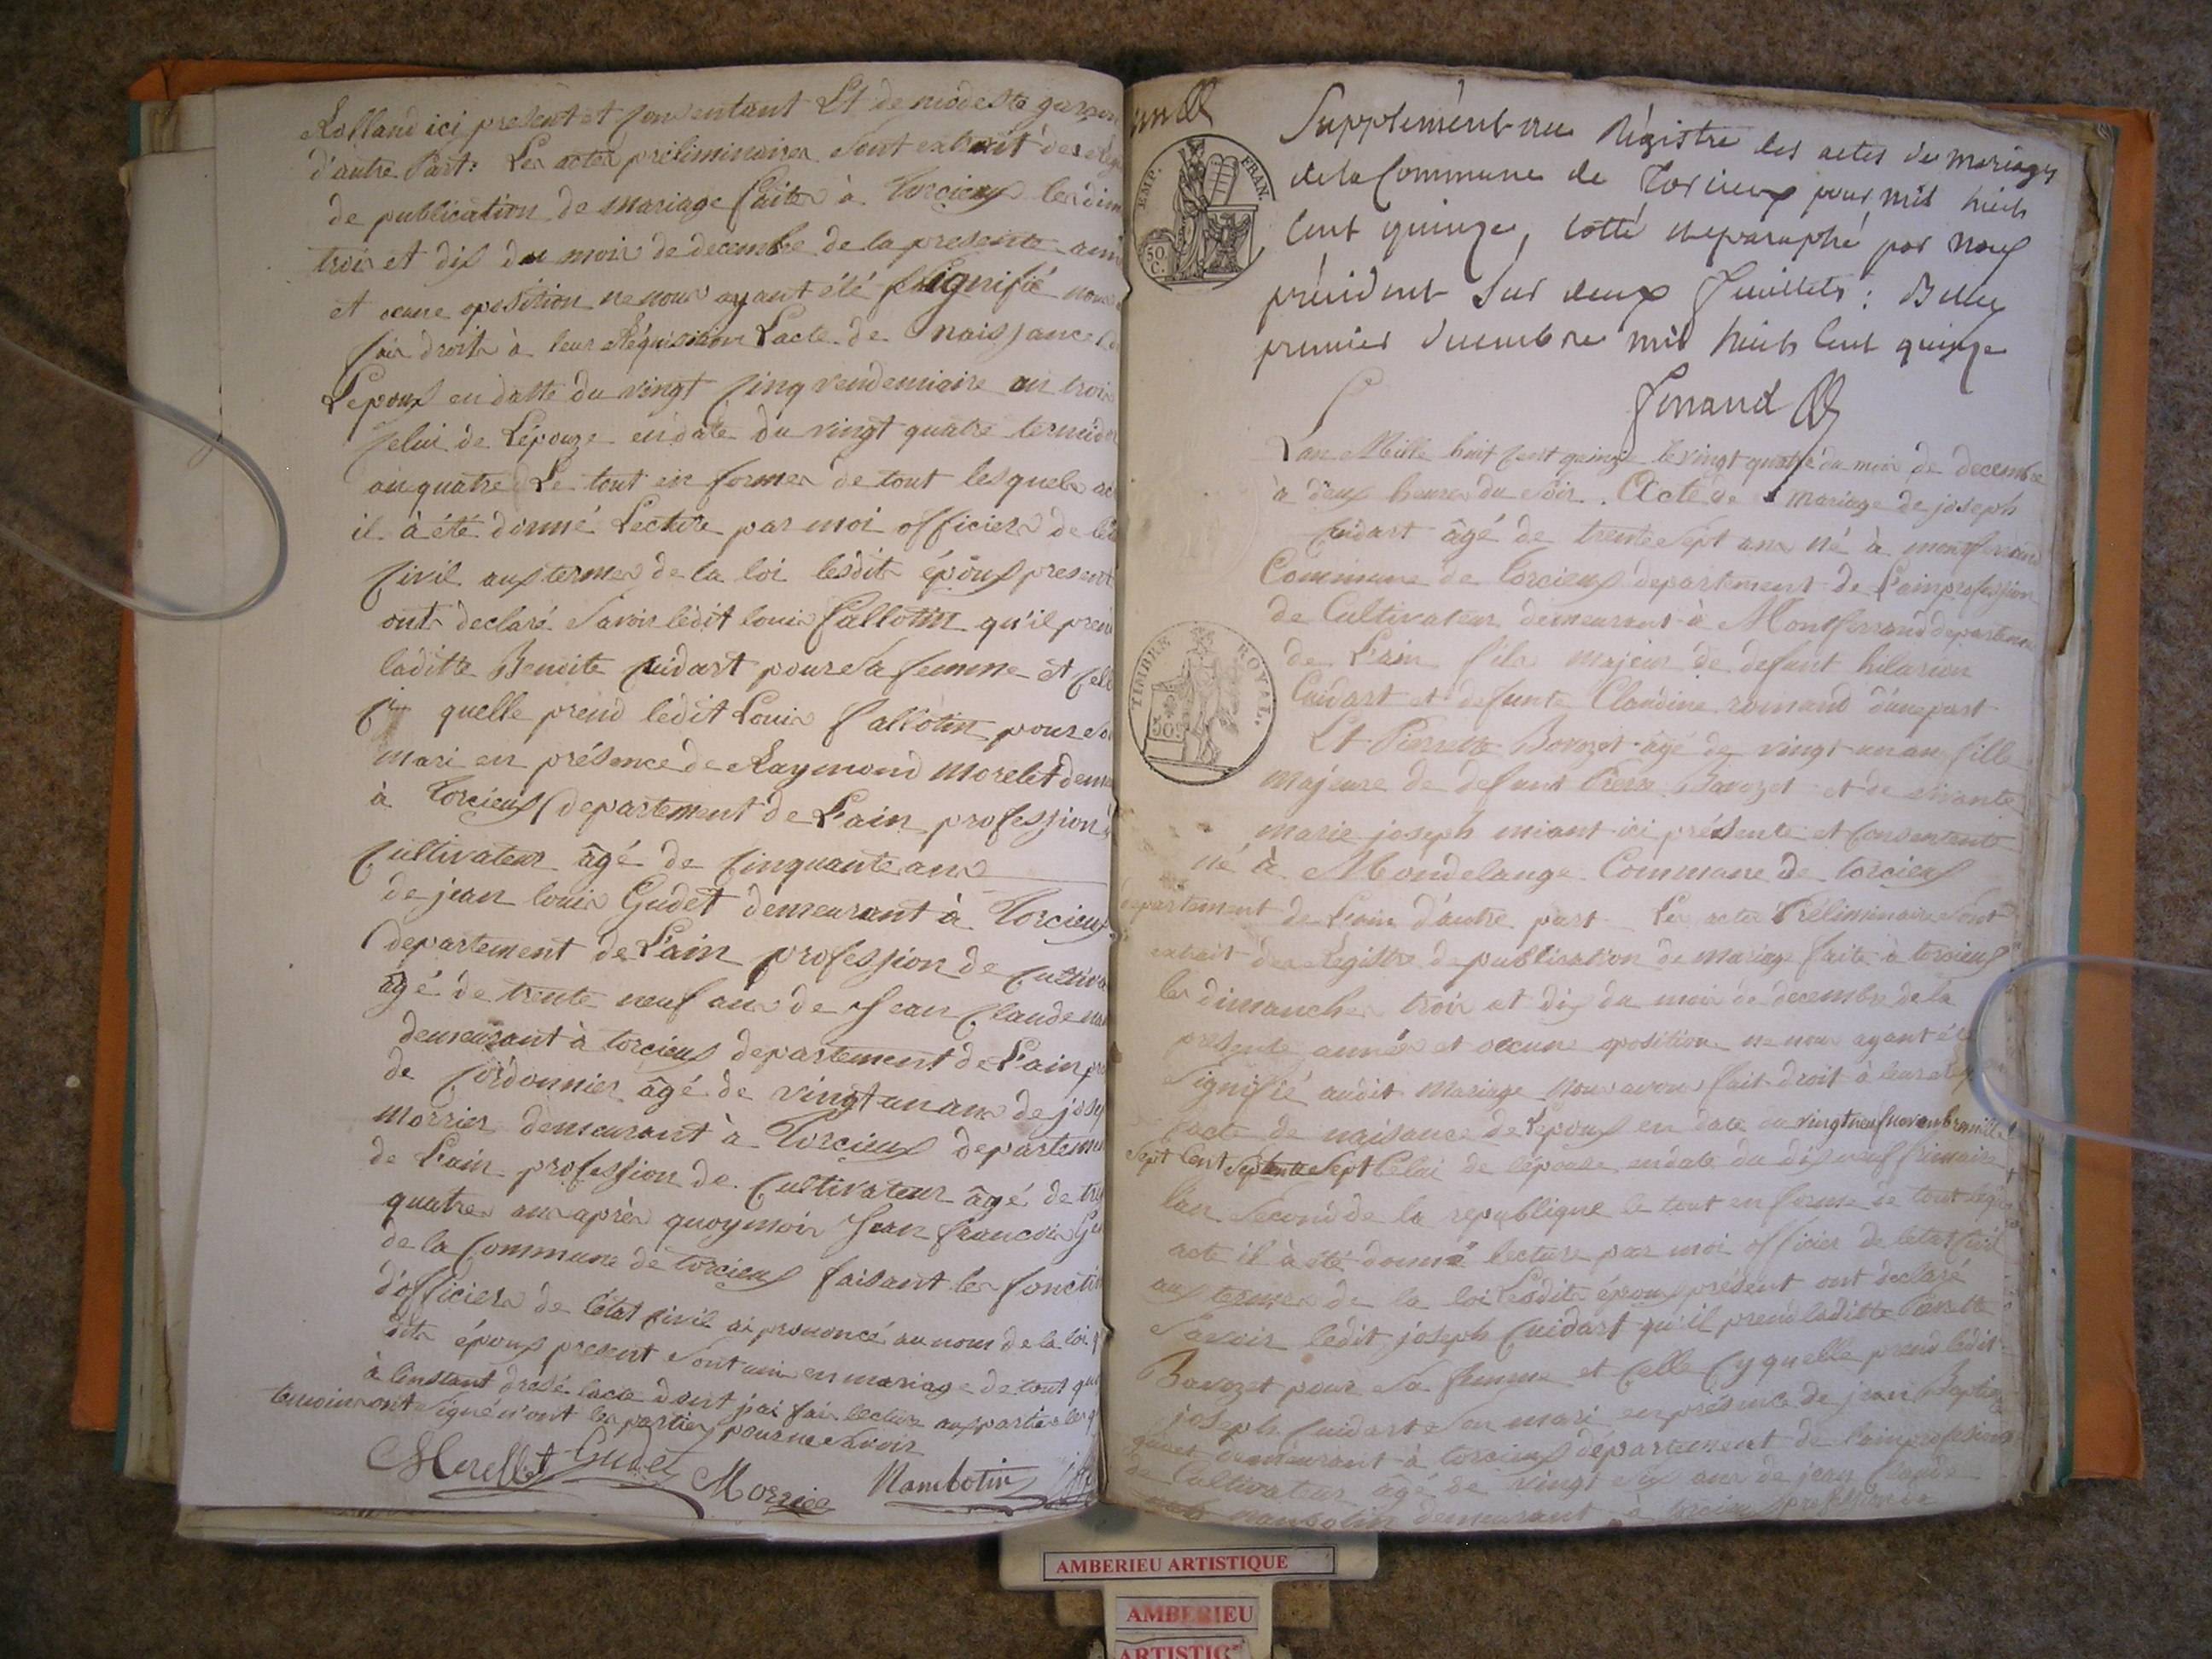 Rolland ici present et consentant Et de modeste
d'autre Part: Les actes préliminaires sont extrait des
de publication de mariage faites à Torcieux les
trois et dix du mois de decembre de la presente
et ocune oposition ne nous ayant été signifié nous
fais droits à leur Réquisition L'acte de naissance
L'epoux en datte du vingt cinq vendemiaire an trois
celui de L'épouze en date du vingt quatre
an quatre Le tout en formes de tout lesquels
il à été donné Lecture par moi officiers de
civil aux termes de la loi lesdits époux present
onts declaré Savoir ledit louis fallotin qu'il
laditte Benoite Cuidart pour Sa femme et
ci quelle prend ledit Louis fallotin pour
mari en présence de Raymond morelet
à Torcieux departement de L'ain profession
Cultivateur âgé de Cinquante ans
de jean louis Gudet demeurant à Torcieux
departement de L'ain profession de
âgé de trente neuf ans de Jean Claude
demeurant à torcieux departement de L'ain
de Cordonnier âgé de vingt un ans de
morrier demeurant à Torcieux
de L'ain profession de Cultivateur âgé de
quatre ans après quoy moi Jean francois
de la Commune de torcieux faisant les
d'officiers de létat civil ai prononcé au nom de la loi
dits époux present sont unis en mariage de tout
à l'instant dresé lacte dont jai fais lecture aux parties
temoins ont signé n'ont les parties pour ne savoir
Morellet Gudet Morrier Nambotin
Supplément au Régistre des actes de mariages
de la Commune de Torcieux pour mil huit
Cent quinze, Cotté et paraphé par nous
président Sur deux feuillets: Belley
premier decembre mil huit Cent quinze
EMP. FRAN.
50 C.
L'an Mille huit Cent quinze le vingt quatre du mois de decembre
à deux heures du Soir. Acte de mariage de joseph
Cuidart âgé de trente Sept ans né à montferrand
Commune de Torcieux departement de L'ain profession
de Cultivateur demeurant à Montferrand
de L'ain fils majeur de defunt hilarion
Cuidart et defunte Claudine romand d'une part
TIMBRE ROYAL
Et Pierrette Bovozet âgé de vingt un an fille
majeure de defunt Pierre Bavozet et de vivante
marie joseph miant ici présente et consentente
né à Mondelange Commune de torcieux
departement de L'ain d'autre part Les actes Préliminaire sont
extrait des Registre de publication de mariage faite à torcieux
les dimanches trois et dix du mois de decembre de la
presente année et occune oposition ne nous ayant été
Signifié audit mariage nous avons fait droit à leur
lacte de naisance de L'époux en date du vingt neuf novembre mille
Sept Cent Septente Sept Celui de l'épouse en date du dix neuf frimaire
l'an Second de la republique le tout en forme de tout
acte il à été donné lecture par moi officier de letat Civil
aux termes de la loi Lesdits époux présent ont declaré
Savoir ledit joseph Cuidart qu'il prend laditte Pierette
Bavozet pour Sa femme et Celle Cy quelle prend ledit
joseph Cuidart Son mari en présence de jean Baptiste
demeurant à torcieux département de l'ain profession
de Cultivateur âgé de vingt Six ans de jean Claude
nambotin demeurant à torcieux profession de
AMBERIEU ARTISTIQUE
AMBERIEU
ARTISTIC